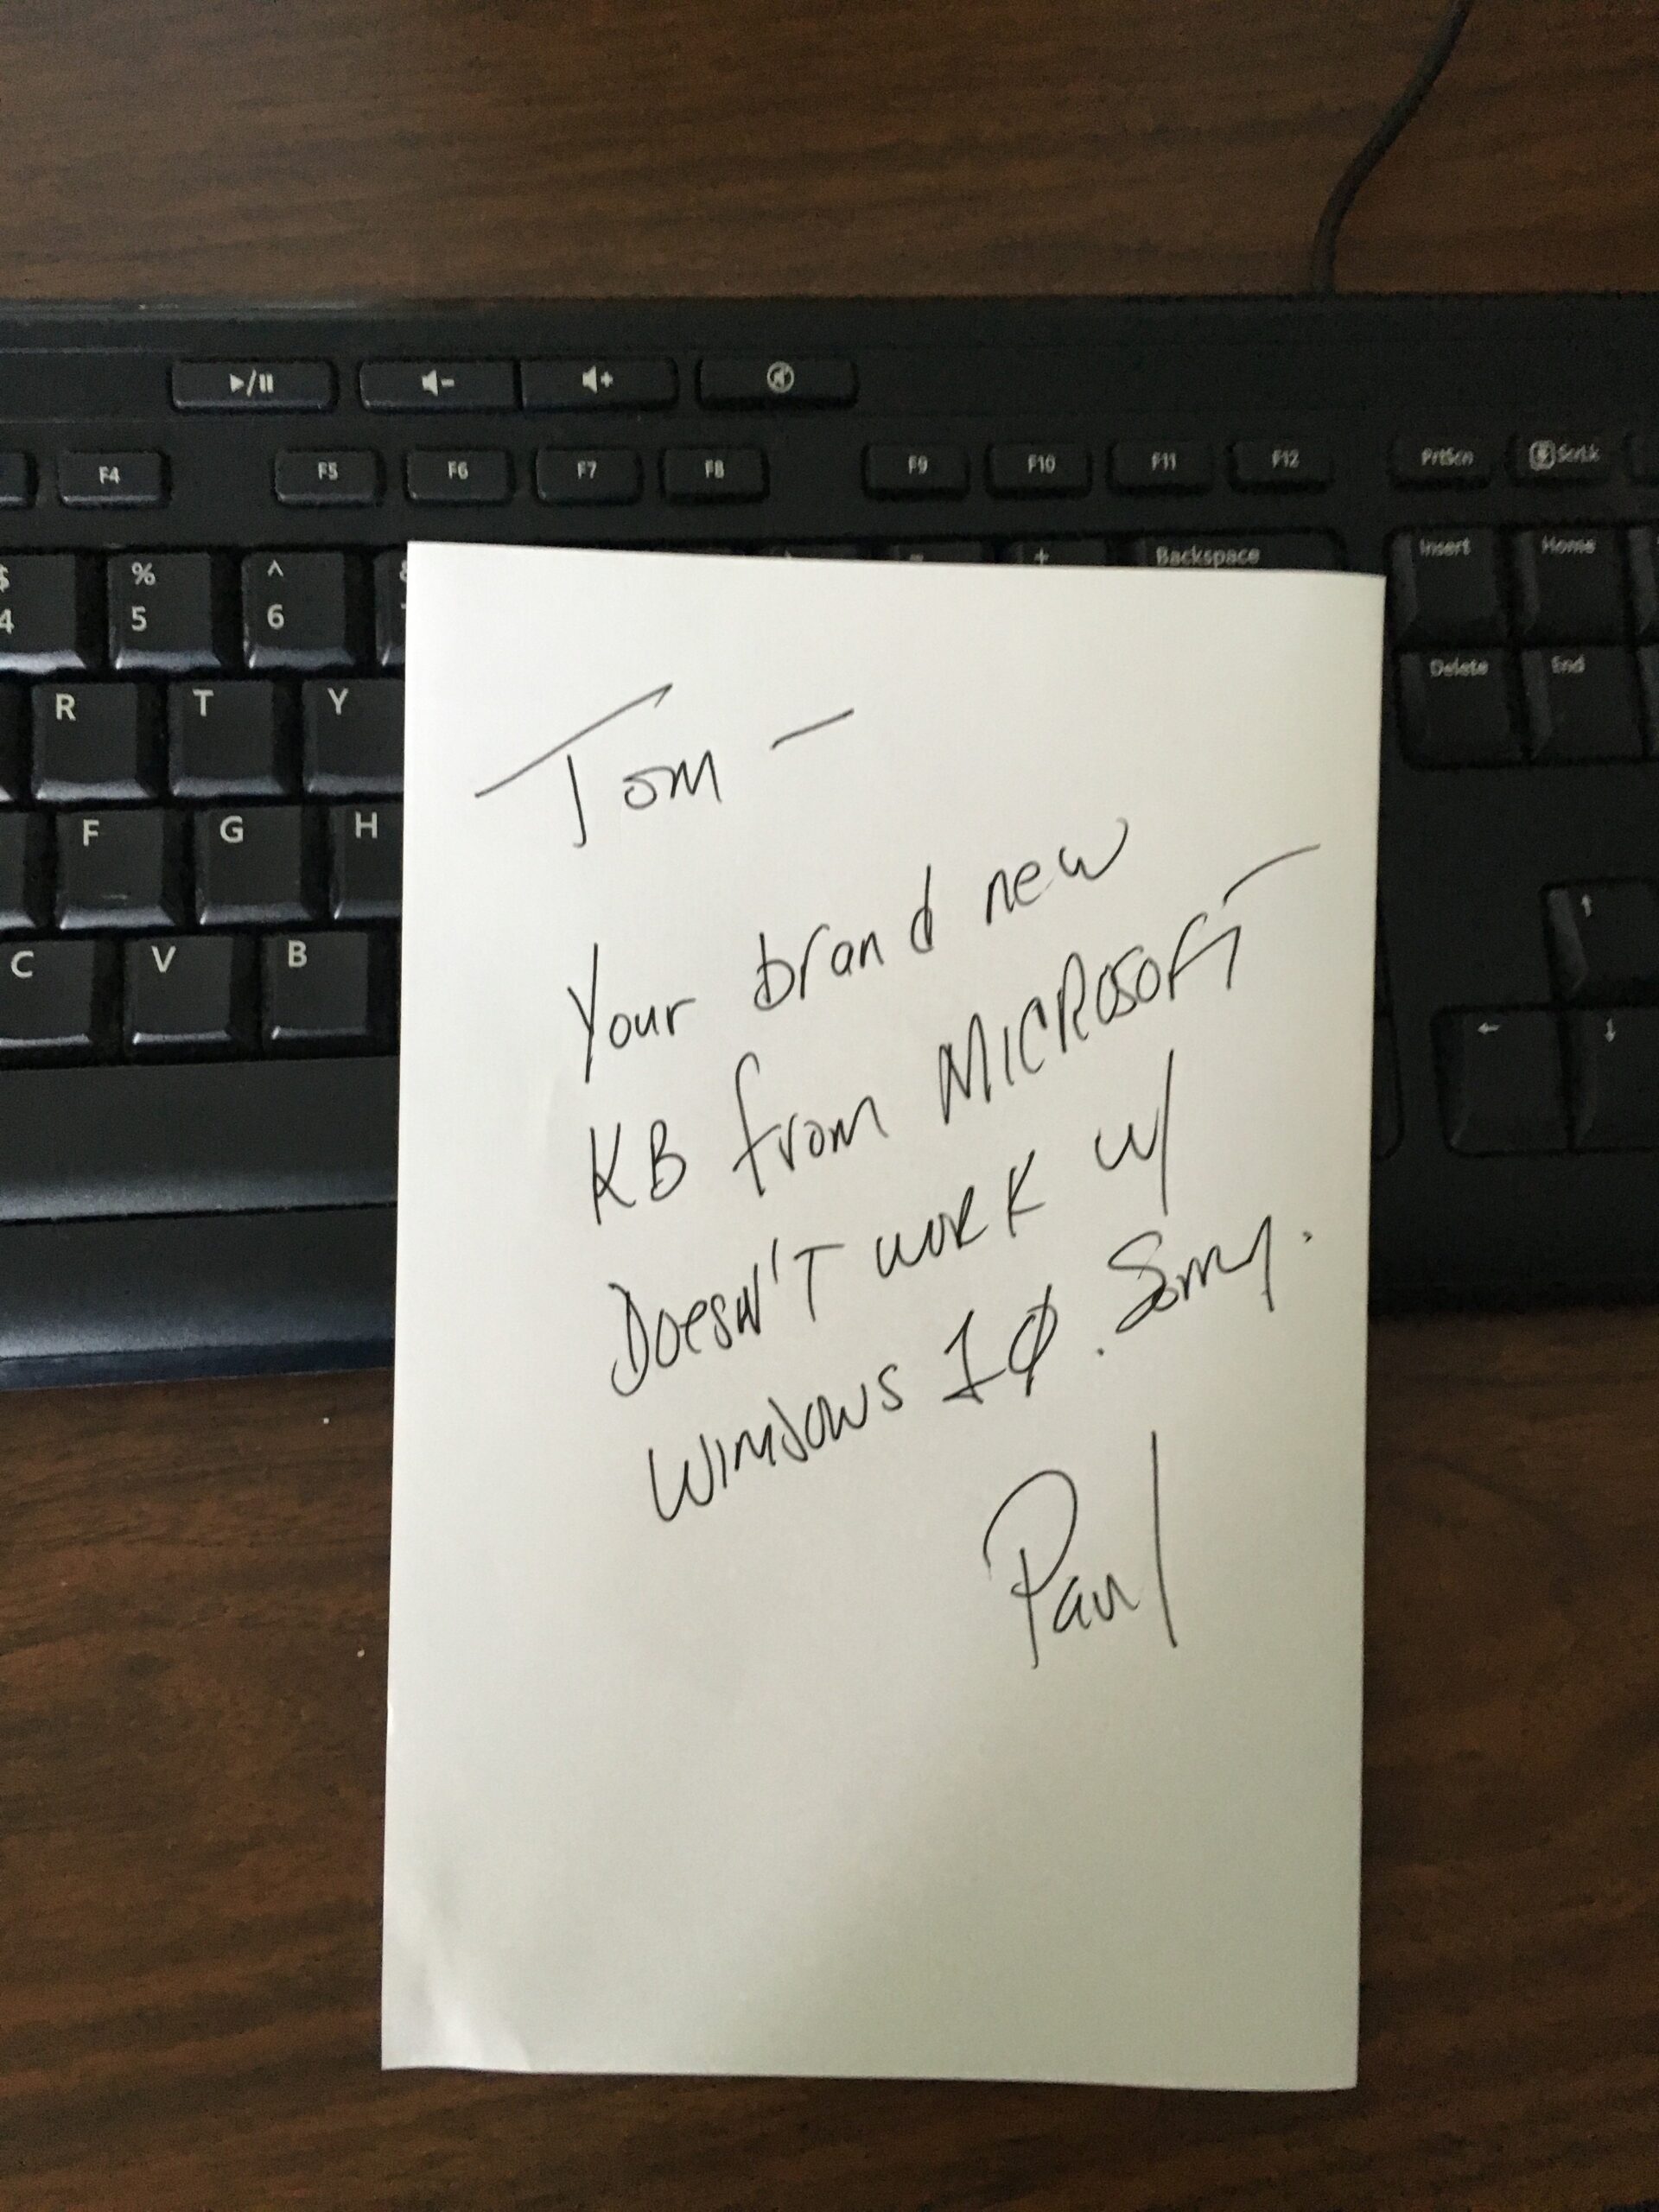 F4 F5 F6 F7 F8 F9 F10 F11 F12 PrtScn ScrLk
$ % ^ + Backspace Insert Home
4 5 6
R T Y Delete End
F G H
C V B
Tom —
Your brand new
KB from MICROSOFT
Doesn't work w/
Windows 10. Sorry.
Paul